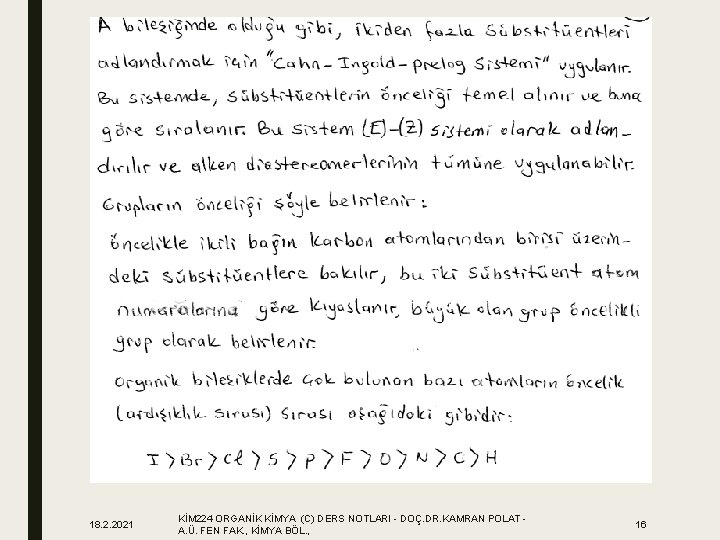 A bileşiğinde olduğu gibi, ikiden fazla sübstitüentleri
adlandırmak için "Cahn-Ingold-prelog sistemi" uygulanır.
Bu sistemde, sübstitüentlerin önceliği temel alınır ve buna
göre sıralanır. Bu sistem (E)-(Z) sistemi olarak adlan-
dırılır ve alken diastereomerlerinin tümüne uygulanabilir.
Grupların önceliği şöyle belirlenir:
öncelikle ikili bağın karbon atomlarından birisi üzerin-
deki sübstitüentlere bakılır, bu iki sübstitüent atom
numaralarına göre kıyaslanır, büyük olan grup öncelikli
grup olarak belirlenir.
Organik bileşiklerde çok bulunan bazı atomların öncelik
(ardışıklık sırası) sırası aşağıdaki gibidir:
I > Br > Cl > S > P > F > O > N > C > H
18.2.2021
KİM224 ORGANİK KİMYA (C) DERS NOTLARI - DOÇ.DR.KAMRAN POLAT -
A.Ü. FEN FAK., KİMYA BÖL.,
16